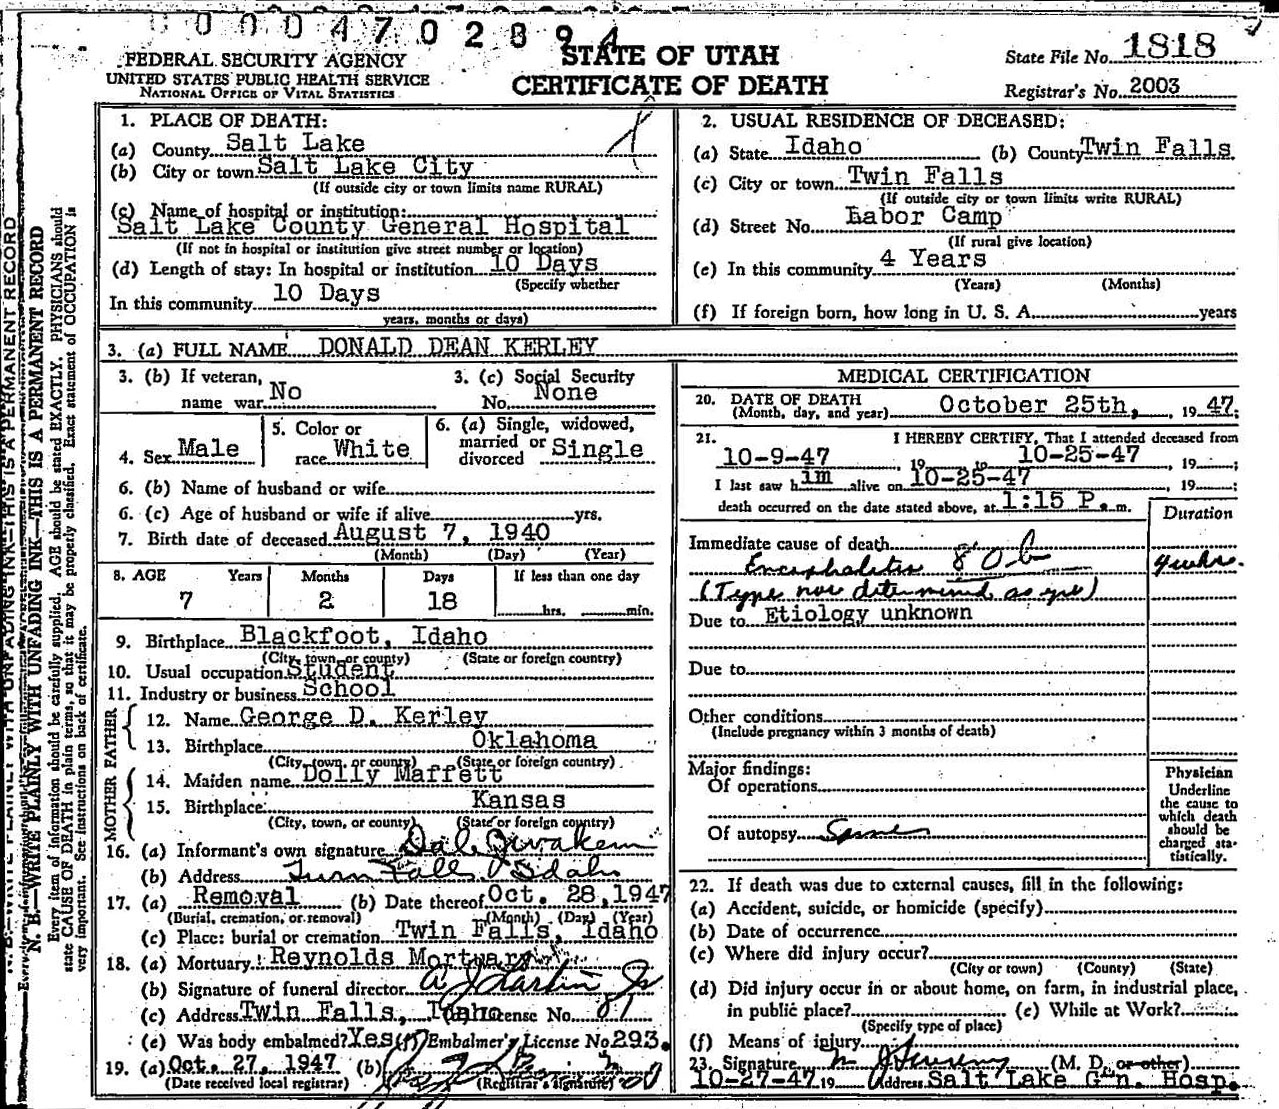 0 0 0 4 7 0 2 8 9 4
FEDERAL SECURITY AGENCY
UNITED STATES PUBLIC HEALTH SERVICE
NATIONAL OFFICE OF VITAL STATISTICS
STATE OF UTAH
CERTIFICATE OF DEATH
State File No. 1818
Registrar's No. 2003
N. B.—WRITE PLAINLY WITH UNFADING INK—THIS IS A PERMANENT RECORD
Every item of information should be carefully supplied. AGE should be stated EXACTLY. PHYSICIANS should
state CAUSE OF DEATH in plain terms, so that it may be properly classified. Exact statement of OCCUPATION is
very important. See instructions on back of certificate.
1. PLACE OF DEATH:
(a) County Salt Lake
(b) City or town Salt Lake City
(If outside city or town limits name RURAL)
(c) Name of hospital or institution:
Salt Lake County General Hospital
(If not in hospital or institution give street number or location)
(d) Length of stay: In hospital or institution 10 Days
(Specify whether
In this community 10 Days
years, months or days)
2. USUAL RESIDENCE OF DECEASED:
(a) State Idaho (b) County Twin Falls
(c) City or town Twin Falls
(If outside city or town limits write RURAL)
(d) Street No. Labor Camp
(If rural give location)
(e) In this community 4 Years
(Years) (Months)
(f) If foreign born, how long in U. S. A. years
3. (a) FULL NAME DONALD DEAN KERLEY
3. (b) If veteran, name war No
3. (c) Social Security No. None
4. Sex Male
5. Color or race White
6. (a) Single, widowed, married or divorced Single
6. (b) Name of husband or wife
6. (c) Age of husband or wife if alive yrs.
7. Birth date of deceased August 7, 1940
(Month) (Day) (Year)
8. AGE Years Months Days If less than one day
7 2 18 hrs. min.
9. Birthplace Blackfoot, Idaho
(City, town, or county) (State or foreign country)
10. Usual occupation Student
11. Industry or business School
FATHER
12. Name George D. Kerley
13. Birthplace Oklahoma
(City, town, or county) (State or foreign country)
MOTHER
14. Maiden name Dolly Maffett
15. Birthplace Kansas
(City, town, or county) (State or foreign country)
16. (a) Informant's own signature Dal
(b) Address Twin Falls Idaho
17. (a) Removal (b) Date thereof Oct. 28, 1947
(Burial, cremation, or removal) (Month) (Day) (Year)
(c) Place: burial or cremation Twin Falls, Idaho
18. (a) Mortuary Reynolds Mortuary
(b) Signature of funeral director A J Larkin Jr
(c) Address Twin Falls, Idaho (d) License No. 81
(e) Was body embalmed? Yes (f) Embalmer's License No 293.
19. (a) Oct. 27, 1947 (b)
(Date received local registrar) (Registrar's signature)
MEDICAL CERTIFICATION
20. DATE OF DEATH
(Month, day, and year) October 25th, 19 47;
21. I HEREBY CERTIFY, That I attended deceased from
10-9-47, 19 to 10-25-47, 19 ;
I last saw him alive on 10-25-47, 19 ;
death occurred on the date stated above, at 1:15 P. m.
Duration
Immediate cause of death
Encephalitis 80b 4 wks.
(Type not determined as yet)
Due to Etiology unknown
Due to
Other conditions
(Include pregnancy within 3 months of death)
Major findings:
Of operations
Of autopsy Same
Physician
Underline
the cause to
which death
should be
charged sta-
tistically.
22. If death was due to external causes, fill in the following:
(a) Accident, suicide, or homicide (specify)
(b) Date of occurrence
(c) Where did injury occur?
(City or town) (County) (State)
(d) Did injury occur in or about home, on farm, in industrial place,
in public place? (e) While at Work?
(Specify type of place)
(f) Means of injury
23. Signature (M. D. or other)
10-27-47 19 Address Salt Lake Gen. Hosp.